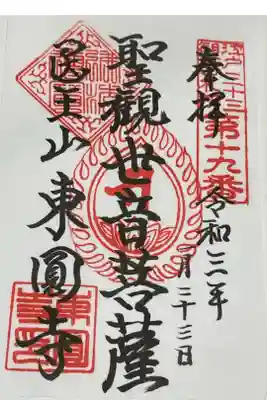 奉拝
江戸三十三
第十九番
令和二年
一月二十三日
聖観世音菩薩
醫王山 東圓寺